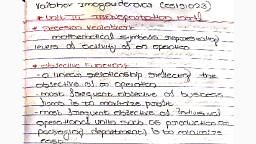 * Decision variables
- mathematical symbols representing
levels of activity of an operation
* Objective function
- a linear relationship reflecting the
objective of an operation
- most frequent objective of business
firms is to maximize profit
- most frequent objective of individual
operational units such as production or
packaging department is to minimize
cost